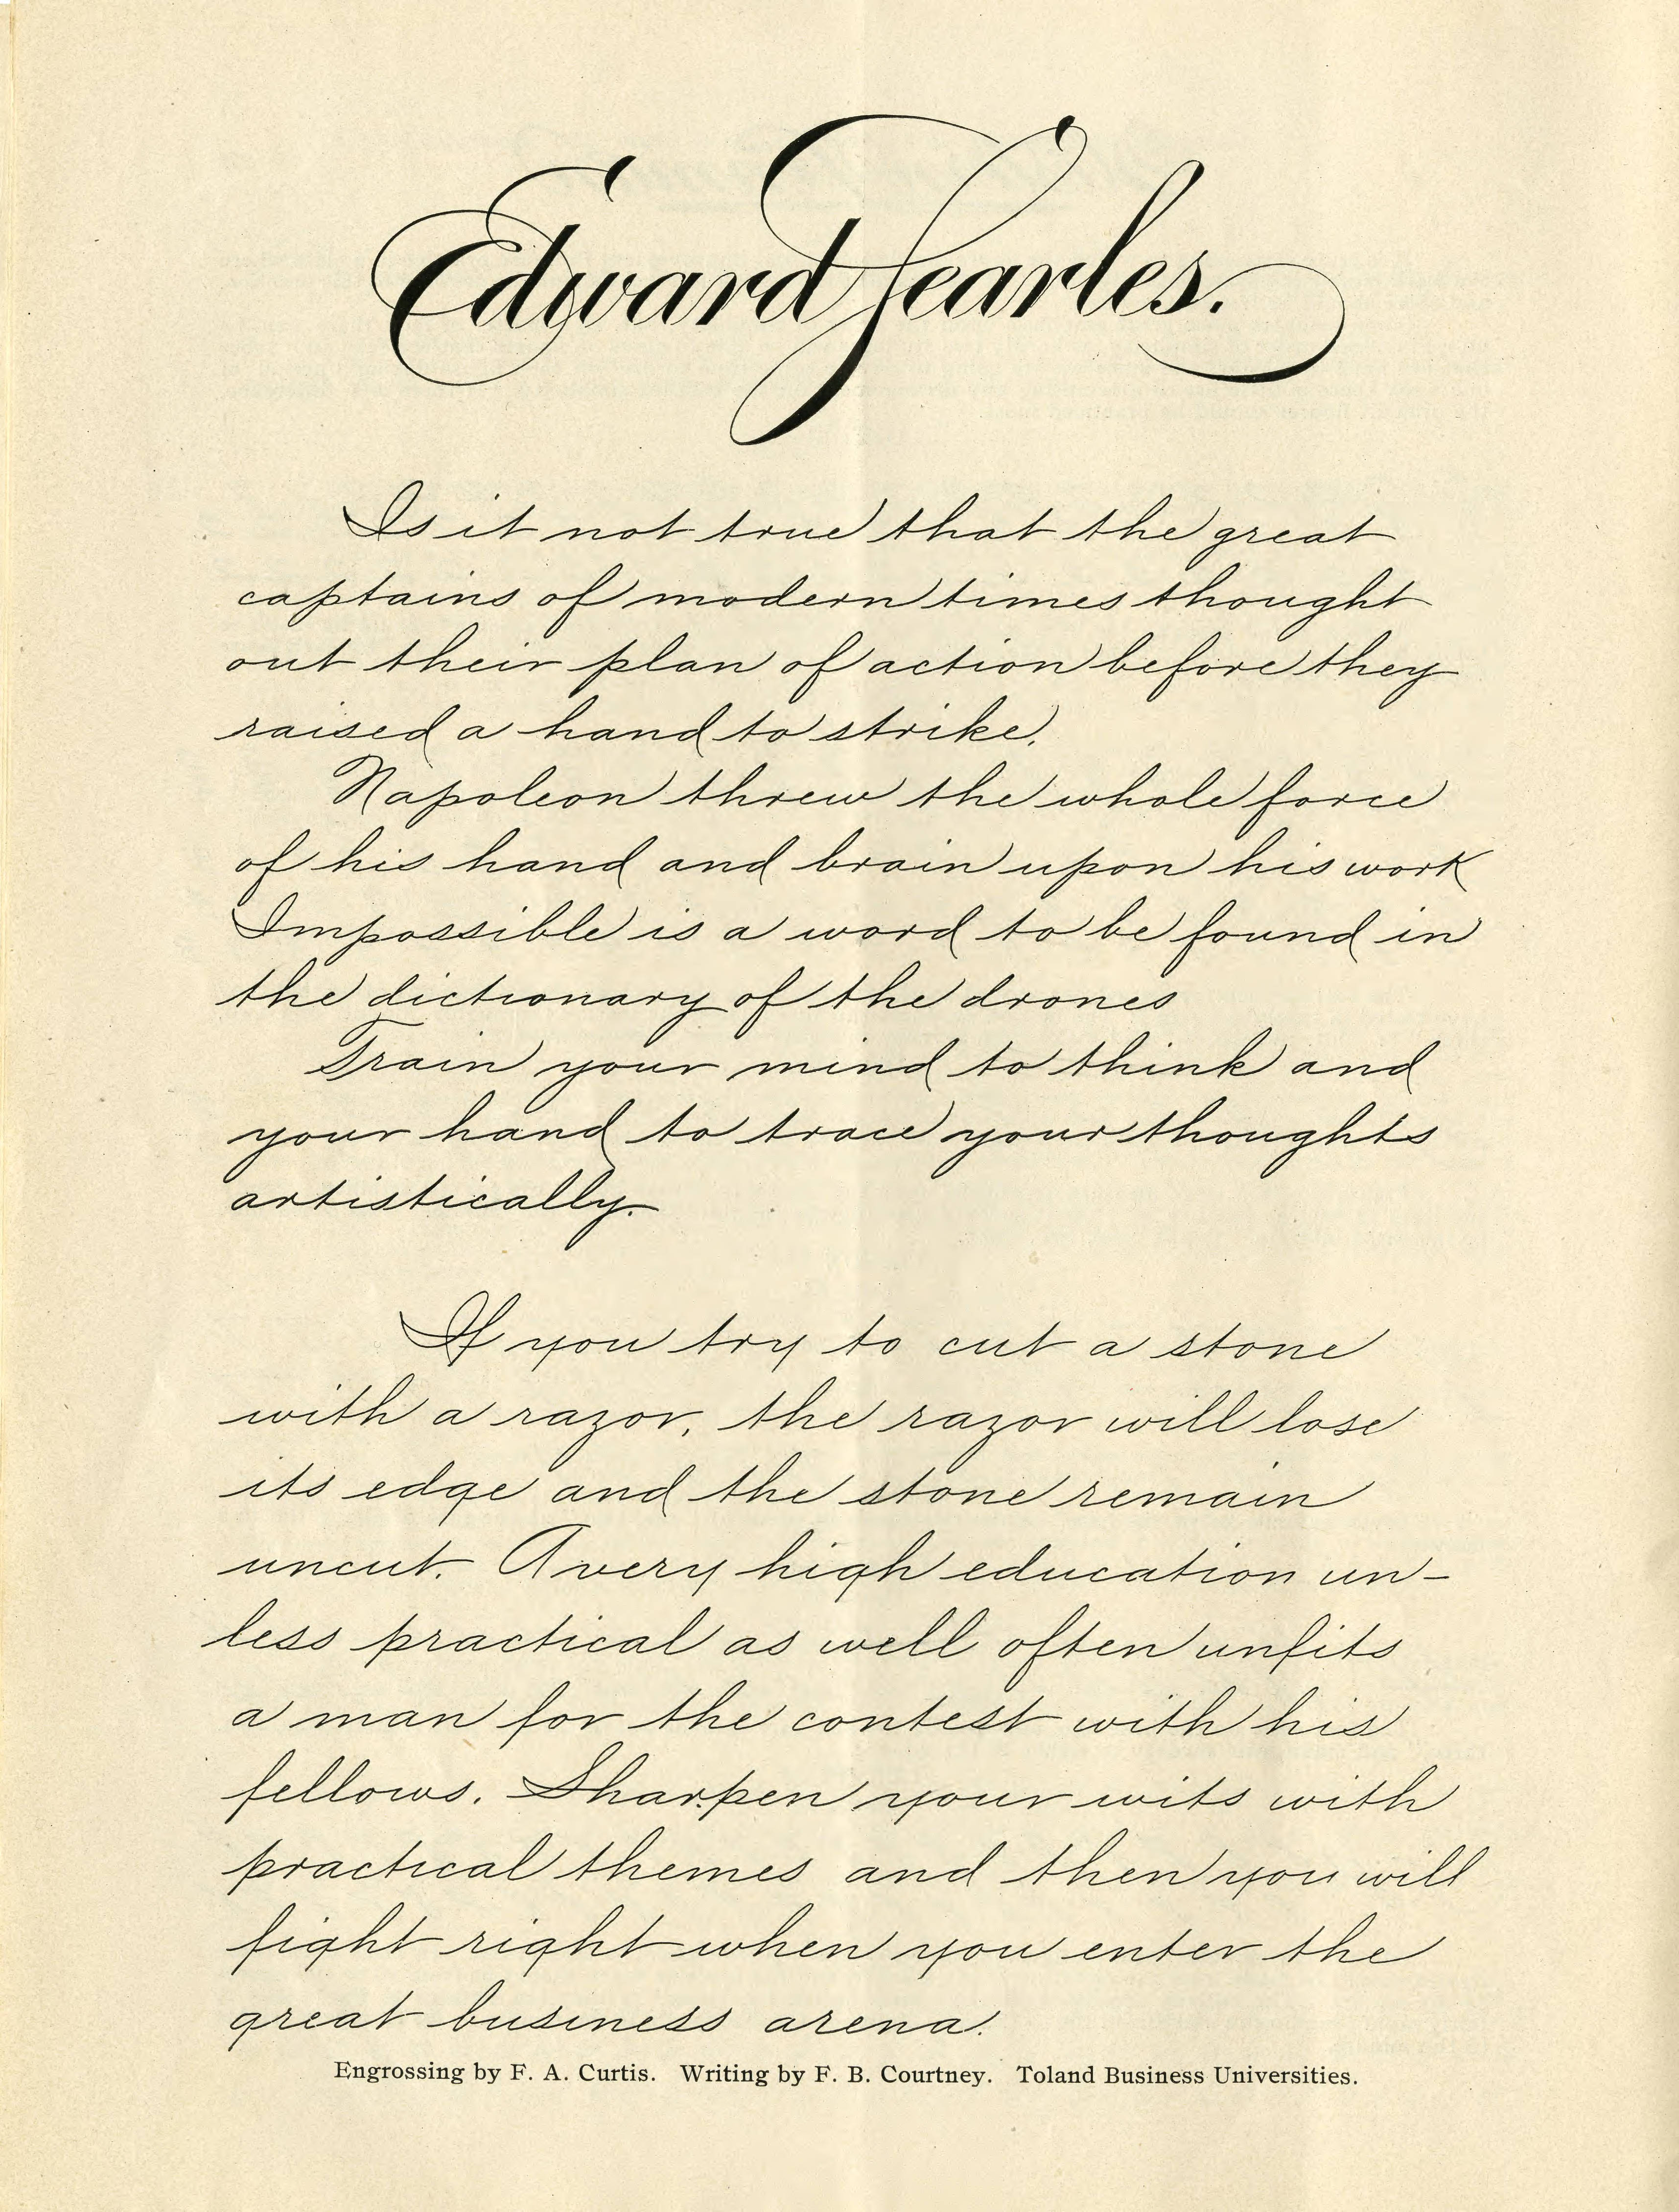 Edward Searles.
Is it not true that the great
captains of modern times thought
out their plan of action before they
raised a hand to strike.
Napoleon threw the whole force
of his hand and brain upon his work
Impossible is a word to be found in
the dictionary of the drones
Train your mind to think and
your hand to trace your thoughts
artistically.
If you try to cut a stone
with a razor, the razor will lose
its edge and the stone remain
uncut. A very high education un-
less practical as well often unfits
a man for the contest with his
fellows. Sharpen your wits with
practical themes and then you will
fight right when you enter the
great business arena.
Engrossing by F. A. Curtis. Writing by F. B. Courtney. Toland Business Universities.